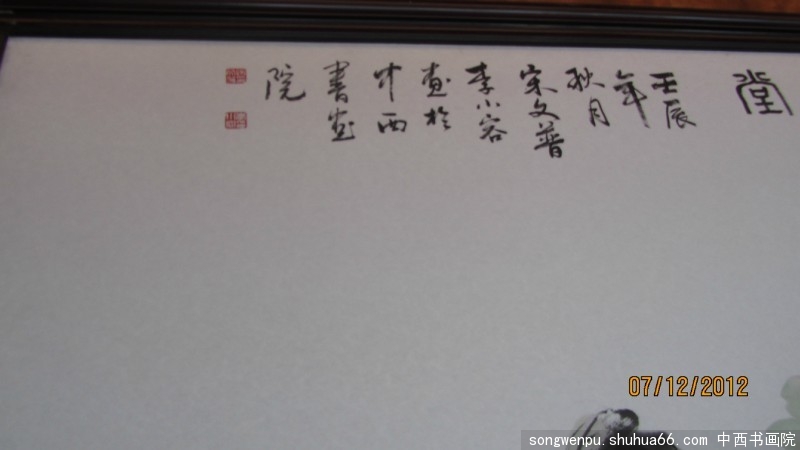 堂
壬辰
年
秋月
宋文普
李小容
画於
中西
書画
院
07/12/2012
songwenpu.shuhua66.com 中西书画院